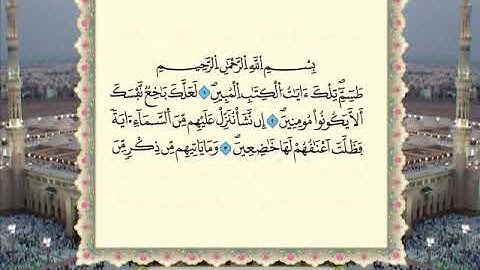 بِسْمِ اِللَّهِ اِلرَّحْمَٰنِ اِلرَّحِيمِ
طَسِٓمِّٓ تِلْكَ ءَايَٰتُ اُلْكِتَٰبِ اِلْمُبِينِ ١ لَعَلَّكَ بَٰخِعٌ نَّفْسَكَ
أَلَّا يَكُونُواْ مُومِنِينَ ٢ إِن نَّشَأْ نُنَزِّلْ عَلَيْهِم مِّنَ اَلسَّمَآءِ ءَايَةً
فَظَلَّتْ أَعْنَٰقُهُمْ لَهَا خَٰضِعِينَ ٣ وَمَا يَاتِيهِم مِّن ذِكْرٍ مِّنَ